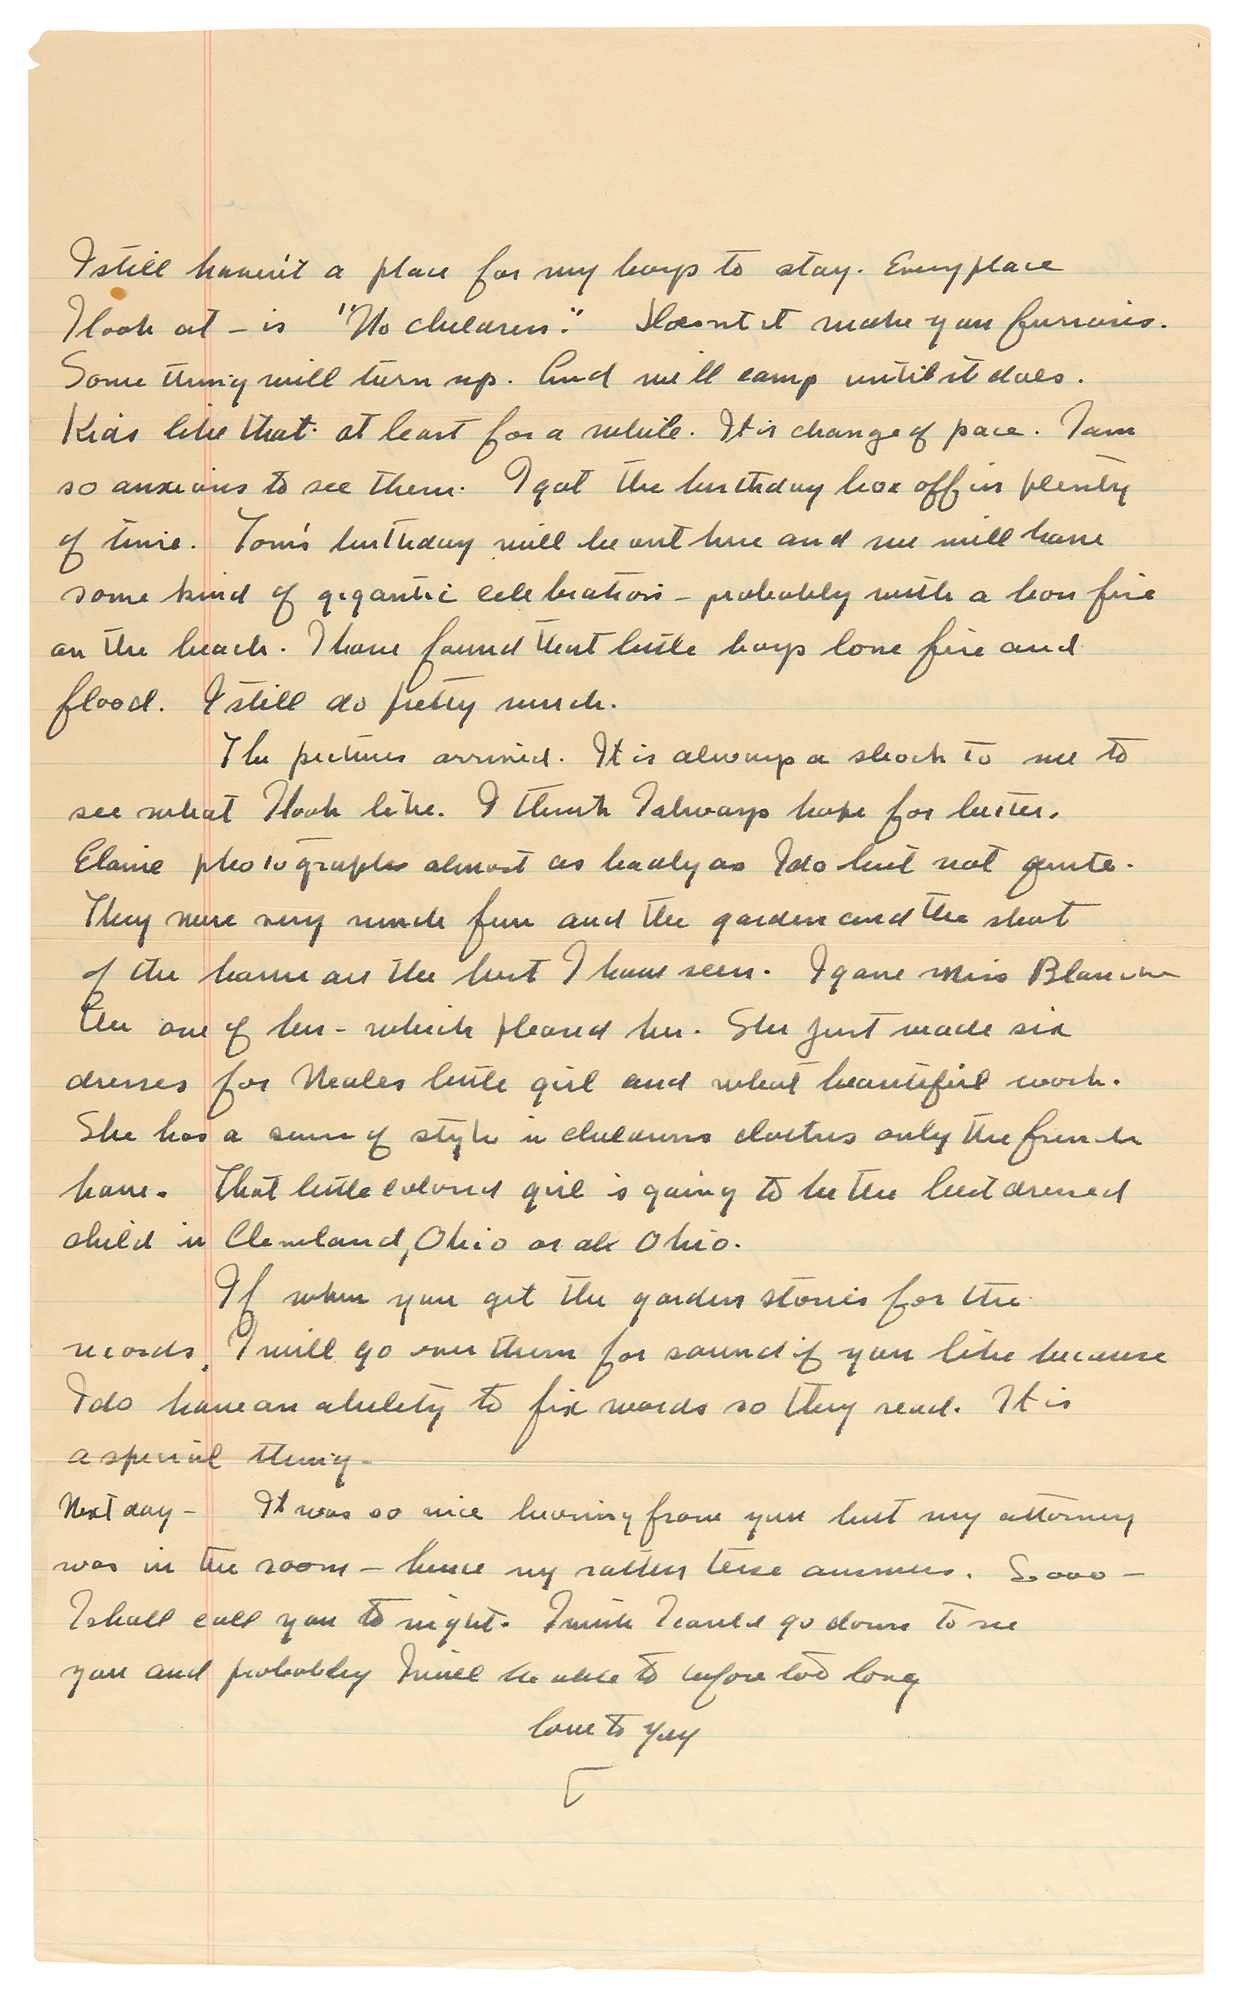 I still haven't a place for my boys to stay. Every place
I look at – is "No children." Doesnt it make you furious.
Some thing will turn up. And we'll camp until it does.
Kids like that at least for a while. It is change of pace. I am
so anxious to see them. I got the birthday box off in plenty
of time. Tom's birthday will be out here and we will have
some kind of gigantic celebration – probably with a bon fire
on the beach. I have found that little boys love fire and
flood. I still do pretty much.
The pictures arrived. It is always a shock to me to
see what I look like. I think I always hope for better.
Elaine photographs almost as badly as I do but not quite.
They were very much fun and the garden and the shot
of the house are the best I have seen. I gave Miss Blanche
the one of her – which pleased her. She just made six
dresses for Neales little girl and what beautiful work.
She has a sense of style in childrens clothes only the french
have. That little colored girl is going to be the best dressed
child in Cleveland, Ohio or all Ohio.
If when you get the garden stories for the
records, I will go over them for sound if you like because
I do have an ability to fix words so they read. It is
a special thing.
Next day – It was so nice hearing from you but my attorney
was in the room – hence my rather terse answers. Sooo –
I shall call you to night. I wish I could go down to see
you and probably I will be able to before too long
love to you